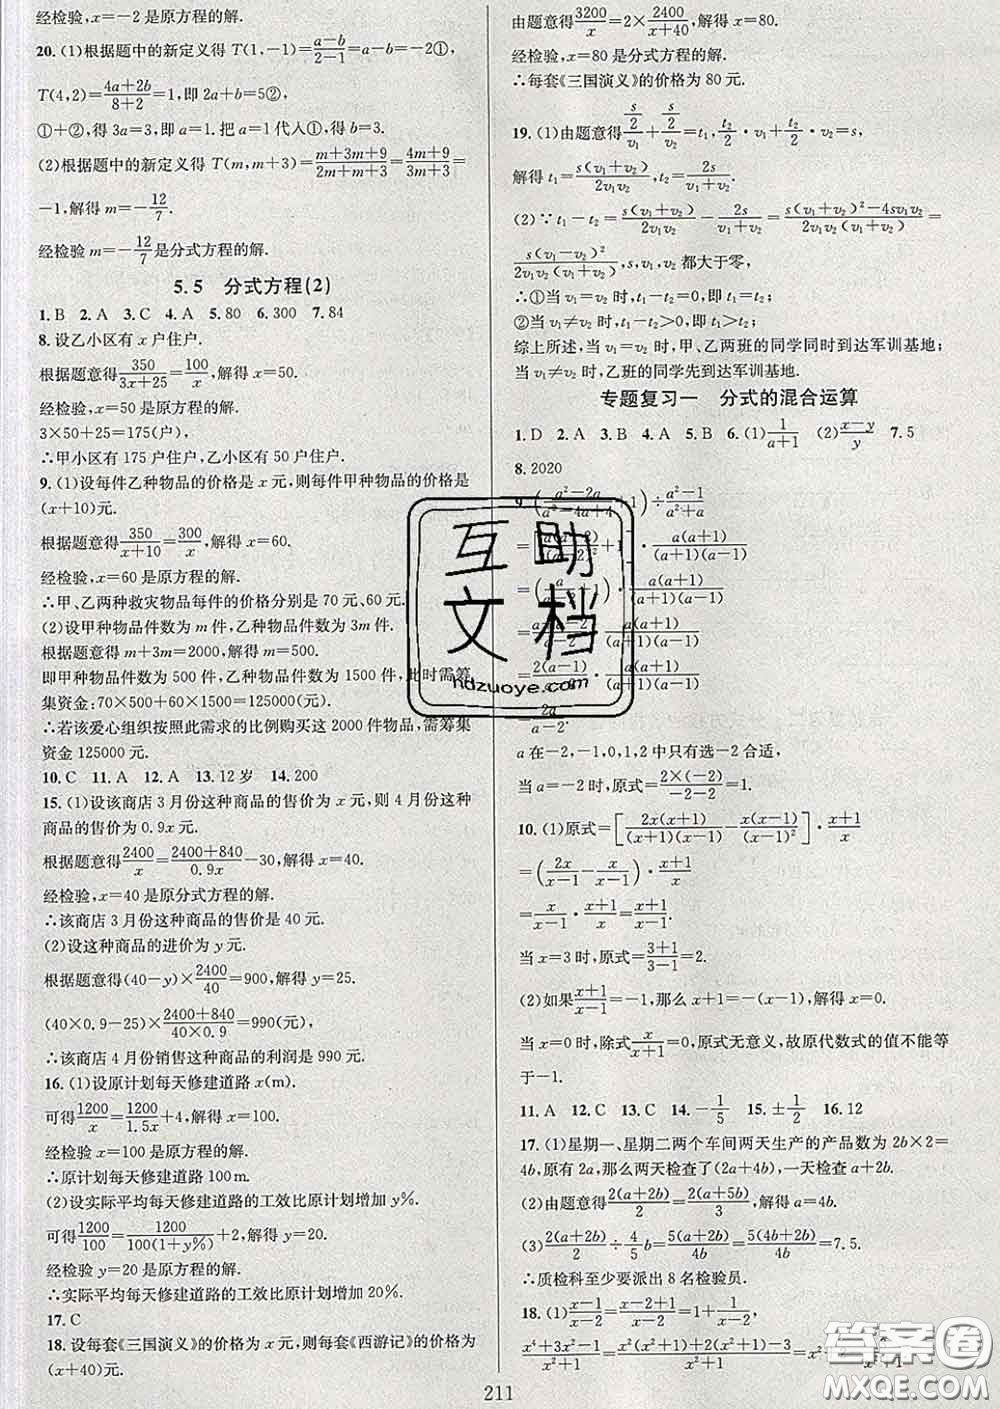 经检验,x=-2是原方程的解.
20. (1)根据题中的新定义得 T(1,-1)=\frac{a-b}{2-1}=a-b=-2①,
T(4,2)=\frac{4a+2b}{8+2}=1,即 2a+b=5②,
①+②,得 3a=3,即 a=1. 把 a=1 代入①,得 b=3.
(2)根据题中的新定义得 T(m,m+3)=\frac{m+3m+9}{2m+m+3}=\frac{4m+9}{3m+3}=
-1,解得 m=-\frac{12}{7}.
经检验 m=-\frac{12}{7}是分式方程的解.
5.5 分式方程(2)
1. B 2. A 3. C 4. A 5. 80 6. 300 7. 84
8. 设乙小区有 x 户住户.
根据题意得\frac{350}{3x+25}=\frac{100}{x},解得 x=50.
经检验,x=50 是原方程的解.
3×50+25=175(户),
∴甲小区有 175 户住户,乙小区有 50 户住户.
9. (1)设每件乙种物品的价格是 x 元,则每件甲种物品的价格是
(x+10)元.
根据题意得\frac{350}{x+10}=\frac{300}{x},解得 x=60.
经检验,x=60 是原方程的解.
∴甲、乙两种救灾物品每件的价格分别是 70 元、60 元.
(2)设甲种物品件数为 m 件,乙种物品件数为 3m 件.
根据题意得 m+3m=2000,解得 m=500.
即甲种物品件数为 500 件,乙种物品件数为 1500 件,此时需筹
集资金:70×500+60×1500=125000(元).
∴若该爱心组织按照此需求的比例购买这 2000 件物品,需筹集
资金 125000 元.
10. C 11. A 12. A 13. 12 岁 14. 200
15. (1)设该商店 3 月份这种商品的售价为 x 元,则 4 月份这种
商品的售价为 0.9x 元.
根据题意得\frac{2400}{x}=\frac{2400+840}{0.9x}-30,解得 x=40.
经检验,x=40 是原分式方程的解.
∴该商店 3 月份这种商品的售价是 40 元.
(2)设这种商品的进价为 y 元.
根据题意得(40-y)×\frac{2400}{40}=900,解得 y=25.
(40×0.9-25)×\frac{2400+840}{40×0.9}=990(元),
∴该商店 4 月份销售这种商品的利润是 990 元.
16. (1)设原计划每天修建道路 x(m).
可得\frac{1200}{x}=\frac{1200}{1.5x}+4,解得 x=100.
经检验 x=100 是原方程的解.
∴原计划每天修建道路 100m.
(2)设实际平均每天修建道路的工效比原计划增加 y%.
可得\frac{1200}{100}=\frac{1200}{100(1+y%)}+2,解得 y=20.
经检验 y=20 是原方程的解.
∴实际平均每天修建道路的工效比原计划增加 20%.
17. C
18. 设每套《三国演义》的价格为 x 元,则每套《西游记》的价格为
(x+40)元.
由题意得\frac{3200}{x}=2×\frac{2400}{x+40},解得 x=80.
经检验,x=80 是分式方程的解.
∴每套《三国演义》的价格为 80 元.
19. (1)由题意得\frac{\frac{s}{2}}{v₁}+\frac{\frac{s}{2}}{v₂}=t₁,\frac{t₂}{2}·v₁+\frac{t₂}{2}·v₂=s,
解得 t₁=\frac{s(v₁+v₂)}{2v₁v₂},t₂=\frac{2s}{v₁+v₂}.
(2)∵t₁-t₂=\frac{s(v₁+v₂)}{2v₁v₂}-\frac{2s}{v₁+v₂}=\frac{s(v₁+v₂)²-4sv₁v₂}{2v₁v₂(v₁+v₂)}=
\frac{s(v₁-v₂)²}{2v₁v₂(v₁+v₂)},s,v₁,v₂ 都大于零,
∴①当 v₁=v₂ 时,t₁-t₂=0,即 t₁=t₂;
②当 v₁≠v₂ 时,t₁-t₂>0,即 t₁>t₂.
综上所述,当 v₁=v₂ 时,甲、乙两班的同学同时到达军训基地;
当 v₁≠v₂ 时,乙班的同学先到达军训基地.
专题复习一 分式的混合运算
1. D 2. A 3. B 4. A 5. B 6. (1)\frac{1}{a+1} (2)\frac{x-y}{y} 7. 5
8. 2020
9. (\frac{a²-2a}{a²-4a+4}+1)÷\frac{a²-1}{a²+a}
=[\frac{a(a-2)}{(a-2)²}+1]·\frac{a(a+1)}{(a+1)(a-1)}
=(\frac{a}{a-2}+1)·\frac{a(a+1)}{(a+1)(a-1)}
=\frac{a+a-2}{a-2}·\frac{a(a+1)}{(a+1)(a-1)}
=\frac{2(a-1)}{a-2}·\frac{a(a+1)}{(a+1)(a-1)}
=\frac{2a}{a-2}.
a 在-2,-1,0,1,2 中只有选-2 合适,
当 a=-2 时,原式=\frac{2×(-2)}{-2-2}=1.
10. (1)原式=[\frac{2x(x+1)}{(x+1)(x-1)}-\frac{x(x-1)}{(x-1)²}]·\frac{x+1}{x}
=(\frac{2x}{x-1}-\frac{x}{x-1})·\frac{x+1}{x}
=\frac{x}{x-1}·\frac{x+1}{x}=\frac{x+1}{x-1}.
当 x=3 时,原式=\frac{3+1}{3-1}=2.
(2)如果\frac{x+1}{x-1}=-1,那么 x+1=-(x-1),解得 x=0.
当 x=0 时,除式\frac{x}{x+1}=0,原式无意义,故原代数式的值不能等
于-1.
11. A 12. C 13. C 14. -\frac{1}{5} 15. ±\frac{1}{2} 16. 12
17. (1)星期一、星期二两个车间两天生产的产品数为 2b×2=
4b,原有 2a,那么两天检查了(2a+4b),一天检验 a+2b.
(2)由题意得\frac{2(a+2b)}{2}=\frac{2(a+5b)}{3},解得 a=4b.
(3)\frac{2(a+2b)}{2}÷\frac{4}{5}b=\frac{5(a+2b)}{4b}=\frac{5(4b+2b)}{4b}=7.5.
∴质检科至少要派出 8 名检验员.
18. (1)\frac{x-1}{x-2}=\frac{x-2+1}{x-2}=1+\frac{1}{x-2},
\frac{x⁴+3x²-1}{x²+1}=\frac{x²(x²+1)+2(x²+1)-3}{x²+1}=x²+2-\frac{3}{x²+1}
211
互助
文档
hdzuoye.com
答案圈
MXQE.COM